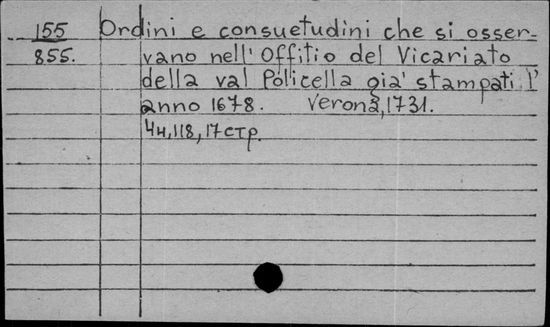 155 Ordini e consuetudini che si osser-
855. vano nell' Offitio del Vicariato
della val Policella già stampati l'
anno 1678. Verona, 1731.
4н, 118, 17 стр.